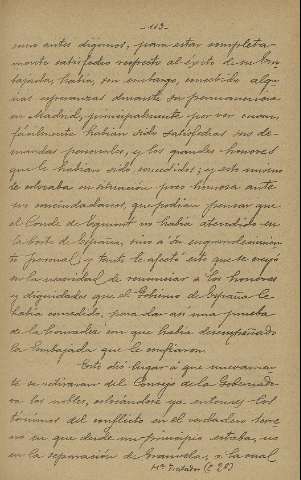 -113-
como antes digimos, para estar completa-
mente satisfecho respecto al éxito de su Em-
bajada, había, sin embargo, concebido algu-
nas esperanzas durante su permanencia
en Madrid, principalmente por ver cuan
fácilmente habían sido satisfechas sus de-
mandas personales, y los grandes honores
que le habían sido concedidos; y esto mismo
le colocaba en situación poco honrosa ante
sus conciudadanos, que podían pensar que
el Conde de Egmont no había atendido en
la Corte de España, sino a su engrandecimien-
to personal; y tanto le afectó esto que se creyó
en la necesidad de renunciar a los honores
y dignidades que el Gobierno de España le
había concedido, para dar así una prueba
de la honradez con que había desempeñado
la Embajada que le confiaron.
Esto dió lugar á que nuevamen-
te se retiraran del Consejo de la Gobernado-
ra los nobles, colocándose ya entonces los
términos del conflicto en el verdadero terre-
no en que desde un principio estaba, es
en la separación de Granvela, á la cual
(C 20)